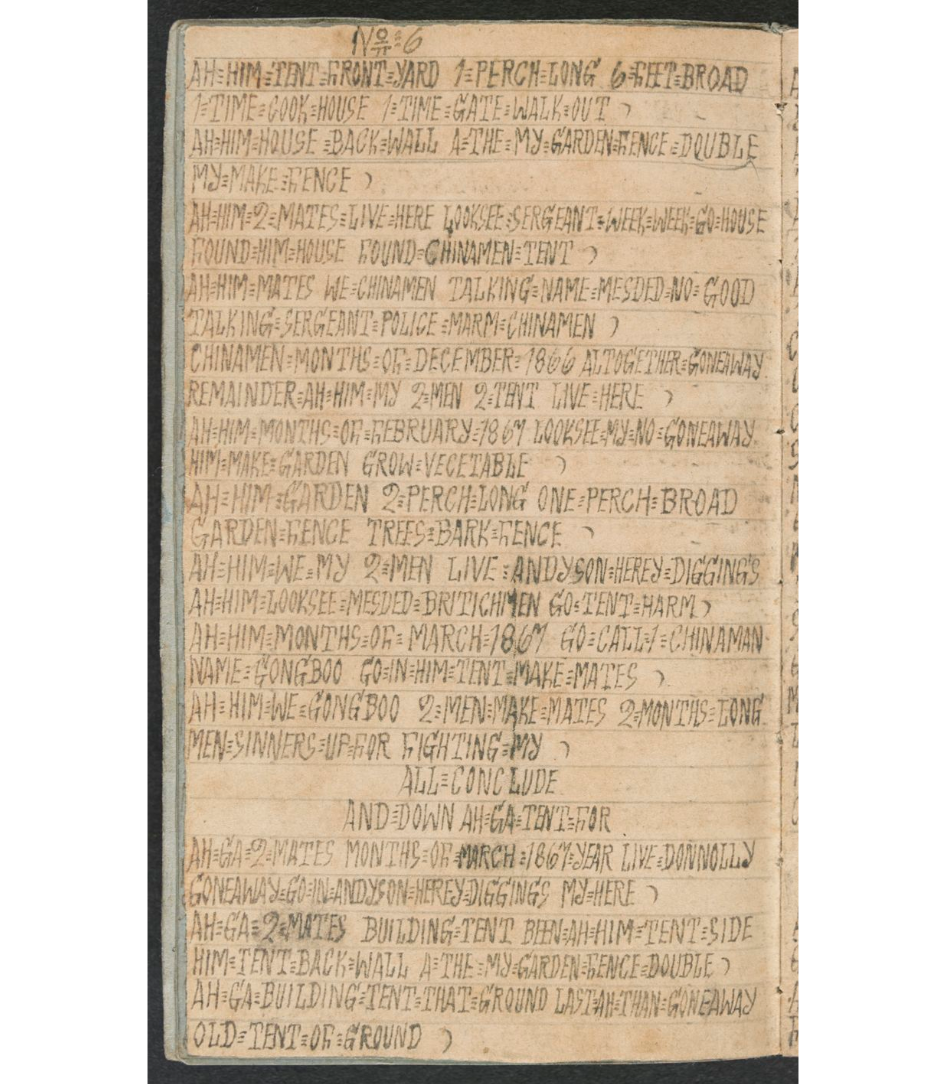 No=6
AH=HIM=TENT=FRONT=YARD 1=PERCH=LONG 6=FEET=BROAD
1=TIME=COOK=HOUSE 1=TIME=GATE=WALK=OUT )
AH=HIM=HOUSE=BACK=WALL A=THE=MY=GARDEN=FENCE=DOUBLE
MY=MAKE=FENCE )
AH=HIM=2=MATES=LIVE=HERE LOOKSEE=SERGEANT=WEEK=WEEK=GO=HOUSE
FOUND=HIM=HOUSE FOUND=CHINAMEN=TENT )
AH=HIM=MATES WE=CHINAMEN TALKING=NAME=MESDED=NO=GOOD
TALKING=SERGEANT=POLICE=MARM=CHINAMEN )
CHINAMEN=MONTHS=OF=DECEMBER=1866 ALTOGETHER=GONEAWAY
REMAINDER=AH=HIM=MY 2=MEN 2=TENT LIVE=HERE )
AH=HIM=MONTHS=OF=FEBRUARY=1867 LOOKSEE=MY=NO=GONEAWAY
HIM=MAKE=GARDEN GROW=VEGETABLE )
AH=HIM=GARDEN 2=PERCH=LONG ONE=PERCH=BROAD
GARDEN=FENCE TREES=BARK=FENCE )
AH=HIM=WE=MY 2=MEN LIVE=ANDYSON=HEREY=DIGGING'S
AH=HIM=LOOKSEE=MESDED=BRITICHMEN GO=TENT=HARM )
AH=HIM=MONTHS=OF=MARCH=1867 GO=CALL=1=CHINAMAN
NAME=GONGBOO GO=IN=HIM=TENT=MAKE=MATES )
AH=HIM=WE=GONGBOO 2=MEN=MAKE=MATES 2=MONTHS=LONG
MEN=SINNERS=UP=FOR FIGHTING=MY )
ALL=CONCLUDE
AND=DOWN AH=GA=TENT=FOR
AH=GA=2=MATES MONTHS=OF=MARCH=1867=YEAR LIVE=DONNOLLY
GONEAWAY=GO=IN=ANDYSON=HEREY=DIGGINGS MY=HERE )
AH=GA=2=MATES BUILDING=TENT BEEN=AH=HIM=TENT=SIDE
HIM=TENT=BACK=WALL A=THE=MY=GARDEN=FENCE=DOUBLE )
AH=GA=BUILDING=TENT=THAT=GROUND LAST=AH=THAN=GONEAWAY
OLD=TENT=OF=GROUND )